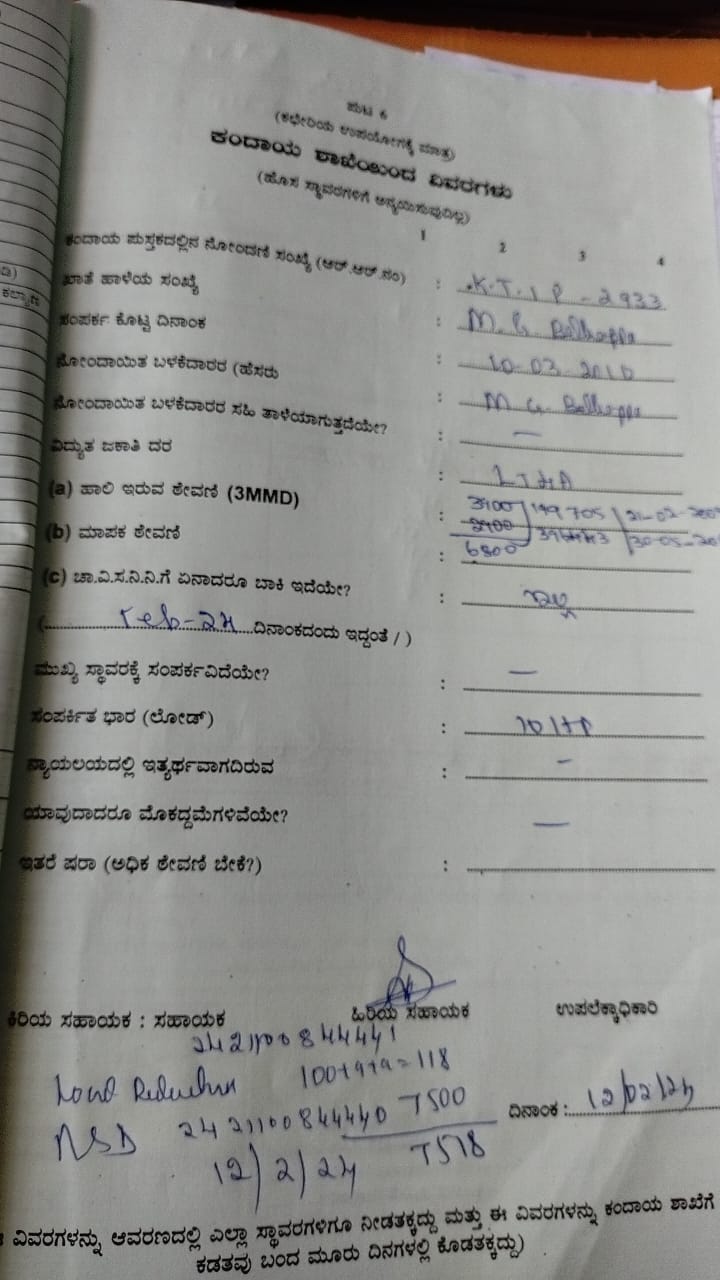 ಪುಟ 6
(ಕಛೇರಿಯ ಉಪಯೋಗಕ್ಕೆ ಮಾತ್ರ)
ಕಂದಾಯ ಶಾಖೆಯಿಂದ ವಿವರಗಳು
(ಹೊಸ ಸ್ಥಾವರಗಳಿಗೆ ಅನ್ವಯಿಸುವುದಿಲ್ಲ)
1 2 3 4
ಕಂದಾಯ ಪುಸ್ತಕದಲ್ಲಿನ ನೋಂದಣಿ ಸಂಖ್ಯೆ (ಆರ್.ಆರ್.ನಂ) : K.T.I P - 2933
ಖಾತೆ ಹಾಳೆಯ ಸಂಖ್ಯೆ : M. G.
ಸಂಪರ್ಕ ಕೊಟ್ಟ ದಿನಾಂಕ : 10-03-2010
ನೋಂದಾಯಿತ ಬಳಕೆದಾರರ (ಹೆಸರು : M G.
ನೋಂದಾಯಿತ ಬಳಕೆದಾರರ ಸಹಿ ತಾಳೆಯಾಗುತ್ತದೆಯೇ? : —
ವಿದ್ಯುತ ಜಕಾತಿ ದರ : LT4A
(a) ಹಾಲಿ ಇರುವ ಠೇವಣಿ (3MMD) 3900/199705/21-02-200
(b) ಮಾಪಕ ಠೇವಣಿ : 2900 /30-05-20
6800
(c) ಚಾ.ವಿ.ಸ.ನಿ.ನಿ.ಗೆ ಏನಾದರೂ ಬಾಕಿ ಇದೆಯೇ? : ಇಲ್ಲ
(Feb-24 ದಿನಾಂಕದಂದು ಇದ್ದಂತೆ / )
ಮುಖ್ಯ ಸ್ಥಾವರಕ್ಕೆ ಸಂಪರ್ಕವಿದೆಯೇ? : —
ಸಂಪರ್ಕಿತ ಭಾರ (ಲೋಡ್) : 10 HP
ನ್ಯಾಯಲಯದಲ್ಲಿ ಇತ್ಯರ್ಥವಾಗದಿರುವ : -
ಯಾವುದಾದರೂ ಮೊಕದ್ದಮೆಗಳಿವೆಯೇ? —
ಇತರೆ ಷರಾ (ಅಧಿಕ ಠೇವಣಿ ಬೇಕೆ?) :
ಕಿರಿಯ ಸಹಾಯಕ : ಸಹಾಯಕ ಹಿರಿಯ ಸಹಾಯಕ ಉಪಲೆಕ್ಕಾಧಿಕಾರಿ
2421100844441
Load Reduction 100+9+9=118
MSD 2421100844440 7500
ದಿನಾಂಕ : 12/02/24
12/2/24 7518
ವಿವರಗಳನ್ನು ಆವರಣದಲ್ಲಿ ಎಲ್ಲಾ ಸ್ಥಾವರಗಳಿಗೂ ನೀಡತಕ್ಕದ್ದು ಮತ್ತು ಈ ವಿವರಗಳನ್ನು ಕಂದಾಯ ಶಾಖೆಗೆ
ಕಡತವು ಬಂದ ಮೂರು ದಿನಗಳಲ್ಲಿ ಕೊಡತಕ್ಕದ್ದು)